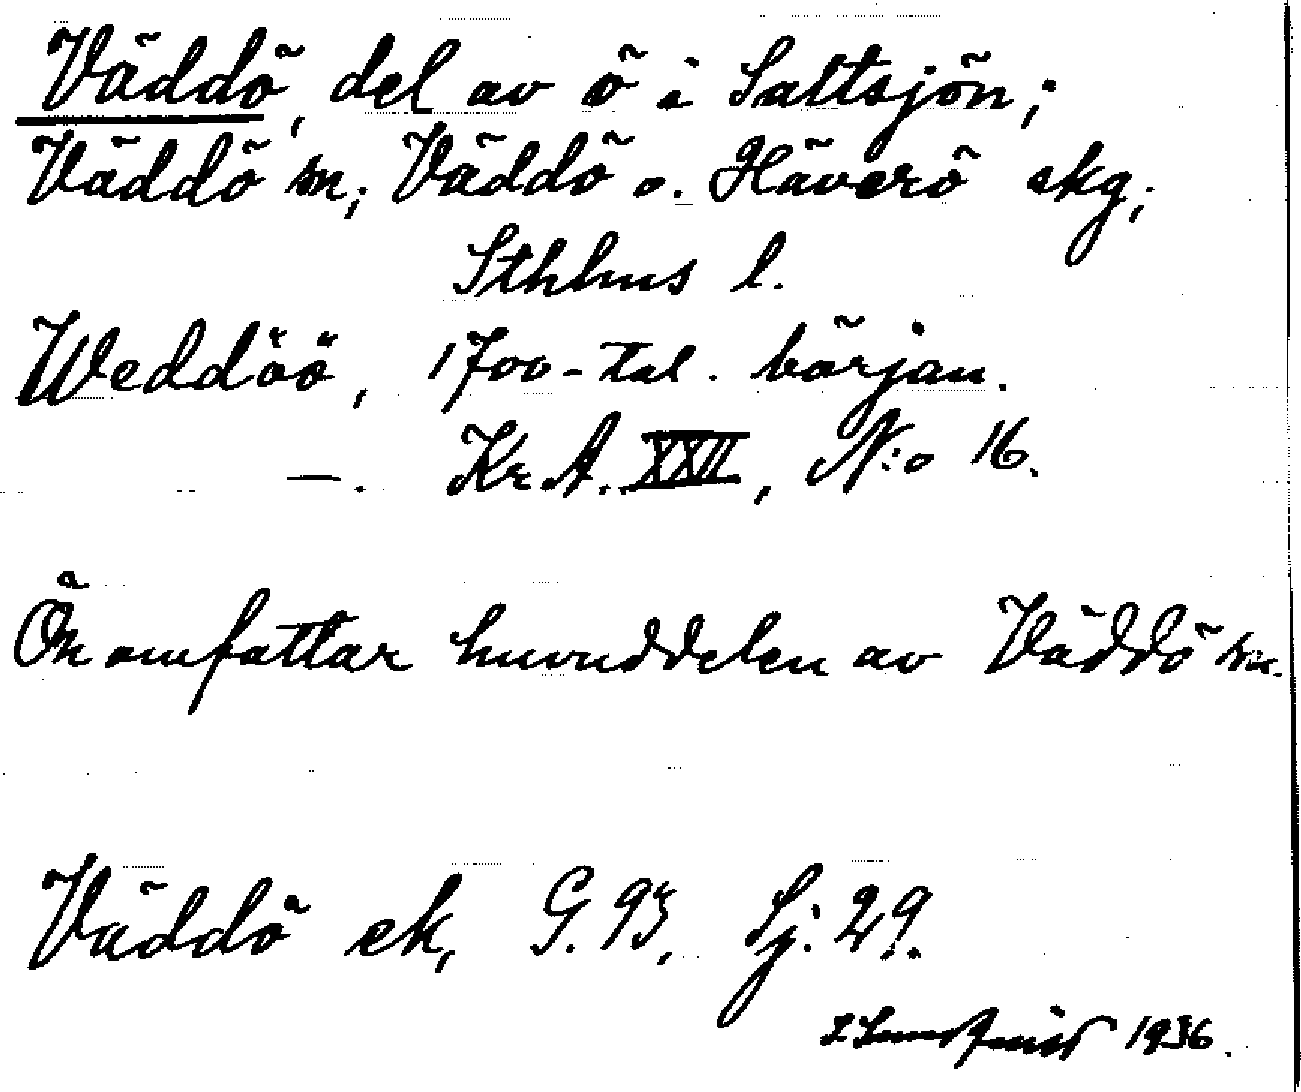 Väddö, del av ö i Saltsjön;
Väddö sn; Väddö o. Häverö skg;
Sthlms l.
Weddöö, 1700-tal. början.
—. Kr. A. XXII, N:o 16.
Ön omfattar huvuddelen av Väddö sn.
Väddö ek, G. 93, Sj. 29.
1936.